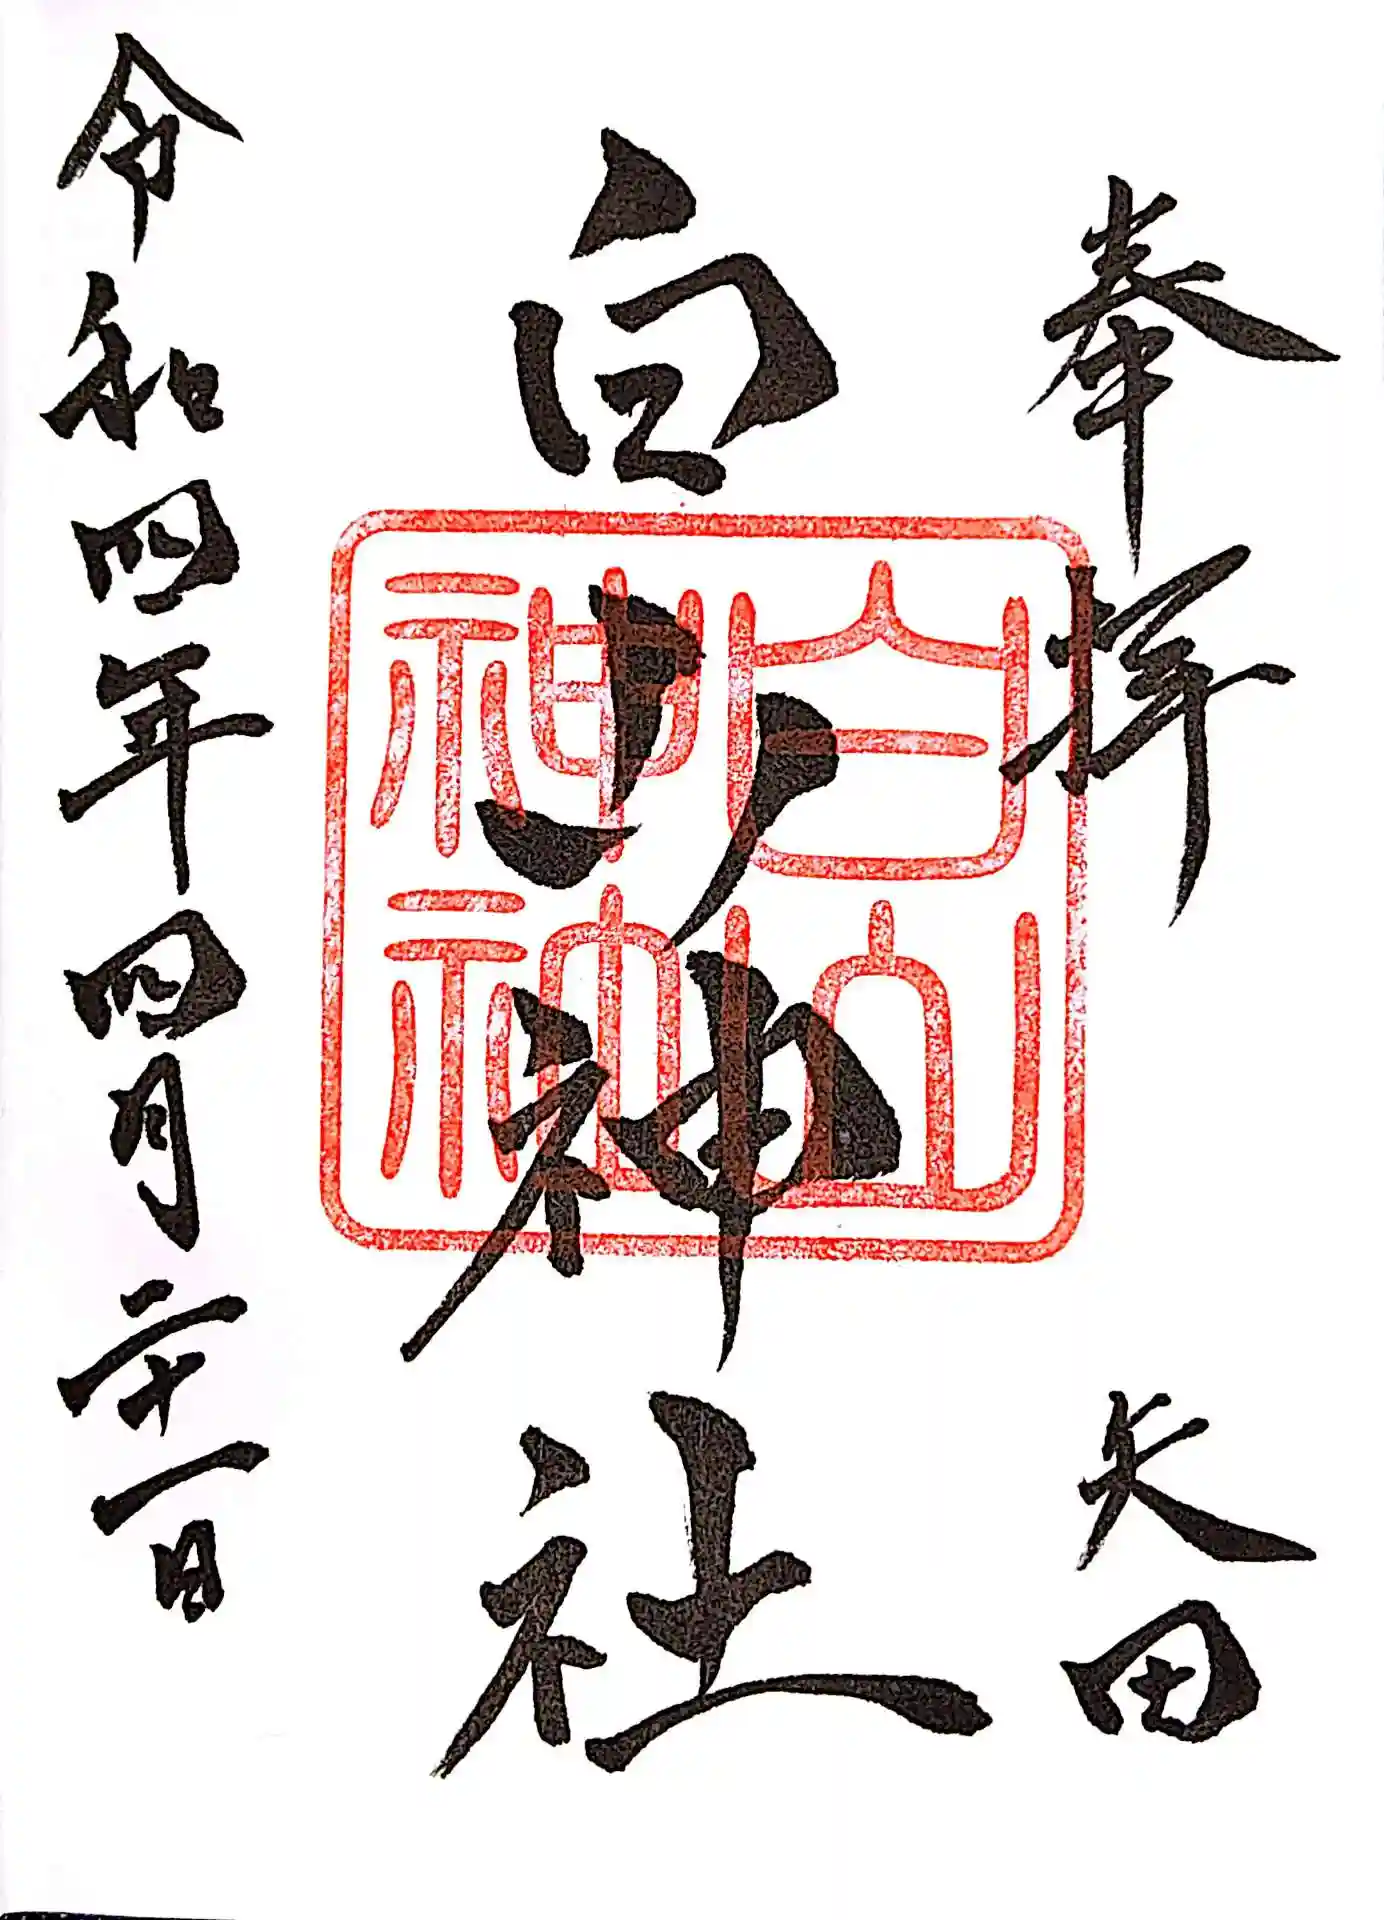 奉拝
矢田
白山神社
白山
神社
令和四年四月二十一日